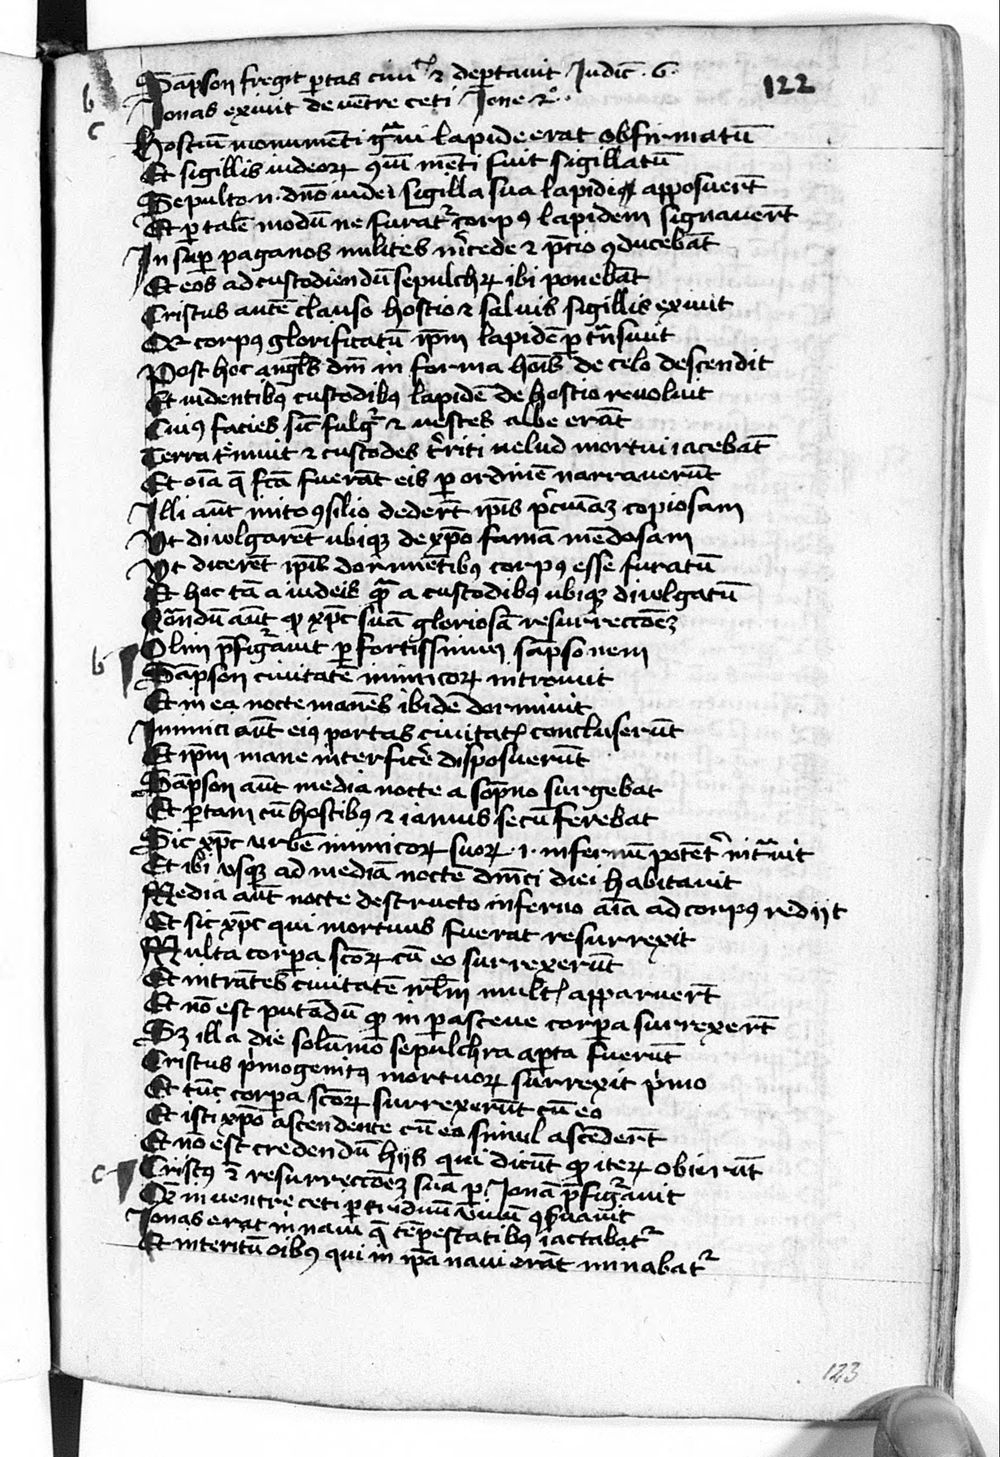 122
b Sāpson fregit ꝑtas ciuiᵗ⁊ ⁊ deꝑtauit Iudic̄ . 6 .
c Ionas exiuit de uētre ceti Ione 2°.
Hostiū monumēti gᵃui lapide erat obfirmatū
Et sigillis iudeoꝝ ꝯmūiēti fuit sigillatū
Sepulto .n. dn̄o iudei sigilla sua lapidi apposuer̄t
Et ꝑ talē modū ne furaret᷑ corpꝰ lapidem signauer̄t
In suꝑ paganos milites m̄cede ⁊ p̄cio ꝯducebāt
Et eos ad custodiendū sepulchꝝ ibi ponebāt
Cristus autē clauso hostio ⁊ saluis sigillis exiuit
Et corpꝰ glorificatū ip̄m lapidē ꝑtᵃnsiuit
Post hoc angl̄s dn̄i in forma hoīs de celo descendit
Et uidentibꝰ custodibꝰ lapidē de hostio reuoluit
Cuiꝰ facies sic̄ fulgᷓ ⁊ uestes albe erāt
Terra t̄muit ⁊ custodes t̄riti uelud mortui iacebāt
Et oīa q̄ fc̄a fuerāt eis ꝑ ordinē narrauerūt
Illi aūt inito ꝯsilio deder̄t ip̄is pecuniaꝫ copiosam
Vt diuolgarēt ubiqꝫ de xp̄o famā mēdosam
Vt dicerēt ip̄is dormiētibꝰ corpꝰ esse furatū
Et hoc tā a iudeis qᵃ a custodibꝰ ubiqꝫ diuolgatū
Notandū aūt ꝙ xp̄c suā gloriosā resurreccōeꝫ
b Olim p̄figᵃuit ꝑ fortissimū sāpsonem
Sāpson ciuitatē inimicoꝝ introiuit
Et in ea nocte manēs ibidē dormiuit
Inimici aūt eiꝰ portas ciuitatꝭ concluserūt
Et ip̄m mane interfic̄e disposuerūt
Sāpson aūt media nocte a sop̄no surgebat
Et ꝑtam cū hostibꝰ ⁊ ianuis secū ferebat
Sic xp̄c urbē inimicoꝝ suoꝝ .i. infernū potēt᷑ int̄uit
Et ibi usqꝫ ad mediā nocte dm̄ici diei habitauit
Media aūt nocte destructo inferno aīa ad corpꝰ redijt
Et sic xp̄c qui mortuus fuerat resurrexit
Multa corꝑa sc̄oꝝ cū eo surrexerūt
Et intrātes ciuitatē irl̄m multꝭ apparuer̄t
Et nō est putādū ꝙ in ꝑasceue corꝑa surrexer̄t
Sꝫ illa die solūmō sepulchra aꝑta fuerūt
Cristus p̄mogenitꝰ mortuoꝝ surrexit p̄mo
Et tūc corꝑa sc̄oꝝ surrexerūt cū eo
Et isti xp̄o ascendente cū eo simul ascēder̄t
Et nō est credendū hijs qui dicūt ꝙ iteꝝ obierūt
c Cristꝰ ē resurreccōeꝫ suā ꝑ Ionā p̄figᵃuit
Qⁱ in uentre ceti ꝑ triduū uiuū ꝯs̄uauit
Ionas erat in naui q̄ tēpestatibꝰ iactabat᷑
Et interitū oībꝰ qui in ip̄a naui erāt minabat᷑
123